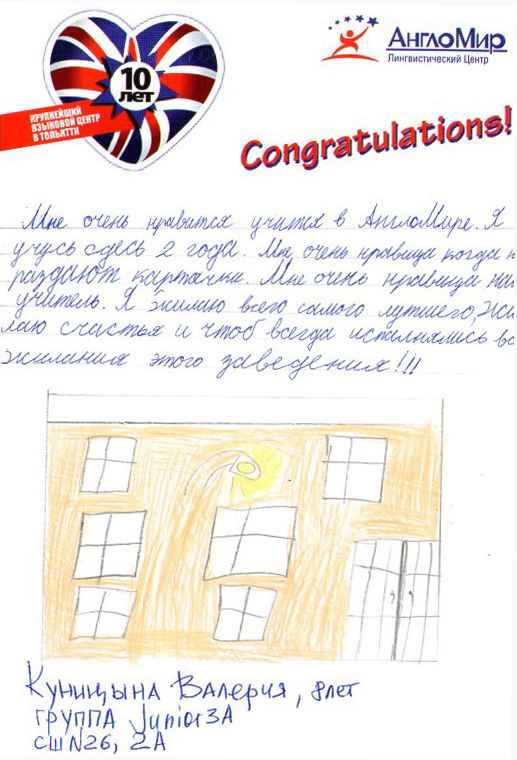 10
лет
КРУПНЕЙШИЙ
ЯЗЫКОВОЙ ЦЕНТР
В ТОЛЬЯТТИ
АнглоМир
Лингвистический Центр
Congratulations!
Мне очень нравится учится в АнглоМире. Я
учусь сдесь 2 года. Мне очень нравица когда
раздают картачки. Мне очень нравица
учитель. Я жилаю всего самого лутшего, жи
лаю счастья и чтоб всегда исполнялись
жилания этого заведения!!!
Куницына Валерия, 8 лет
группа Junior 3А
СШ N26, 2А